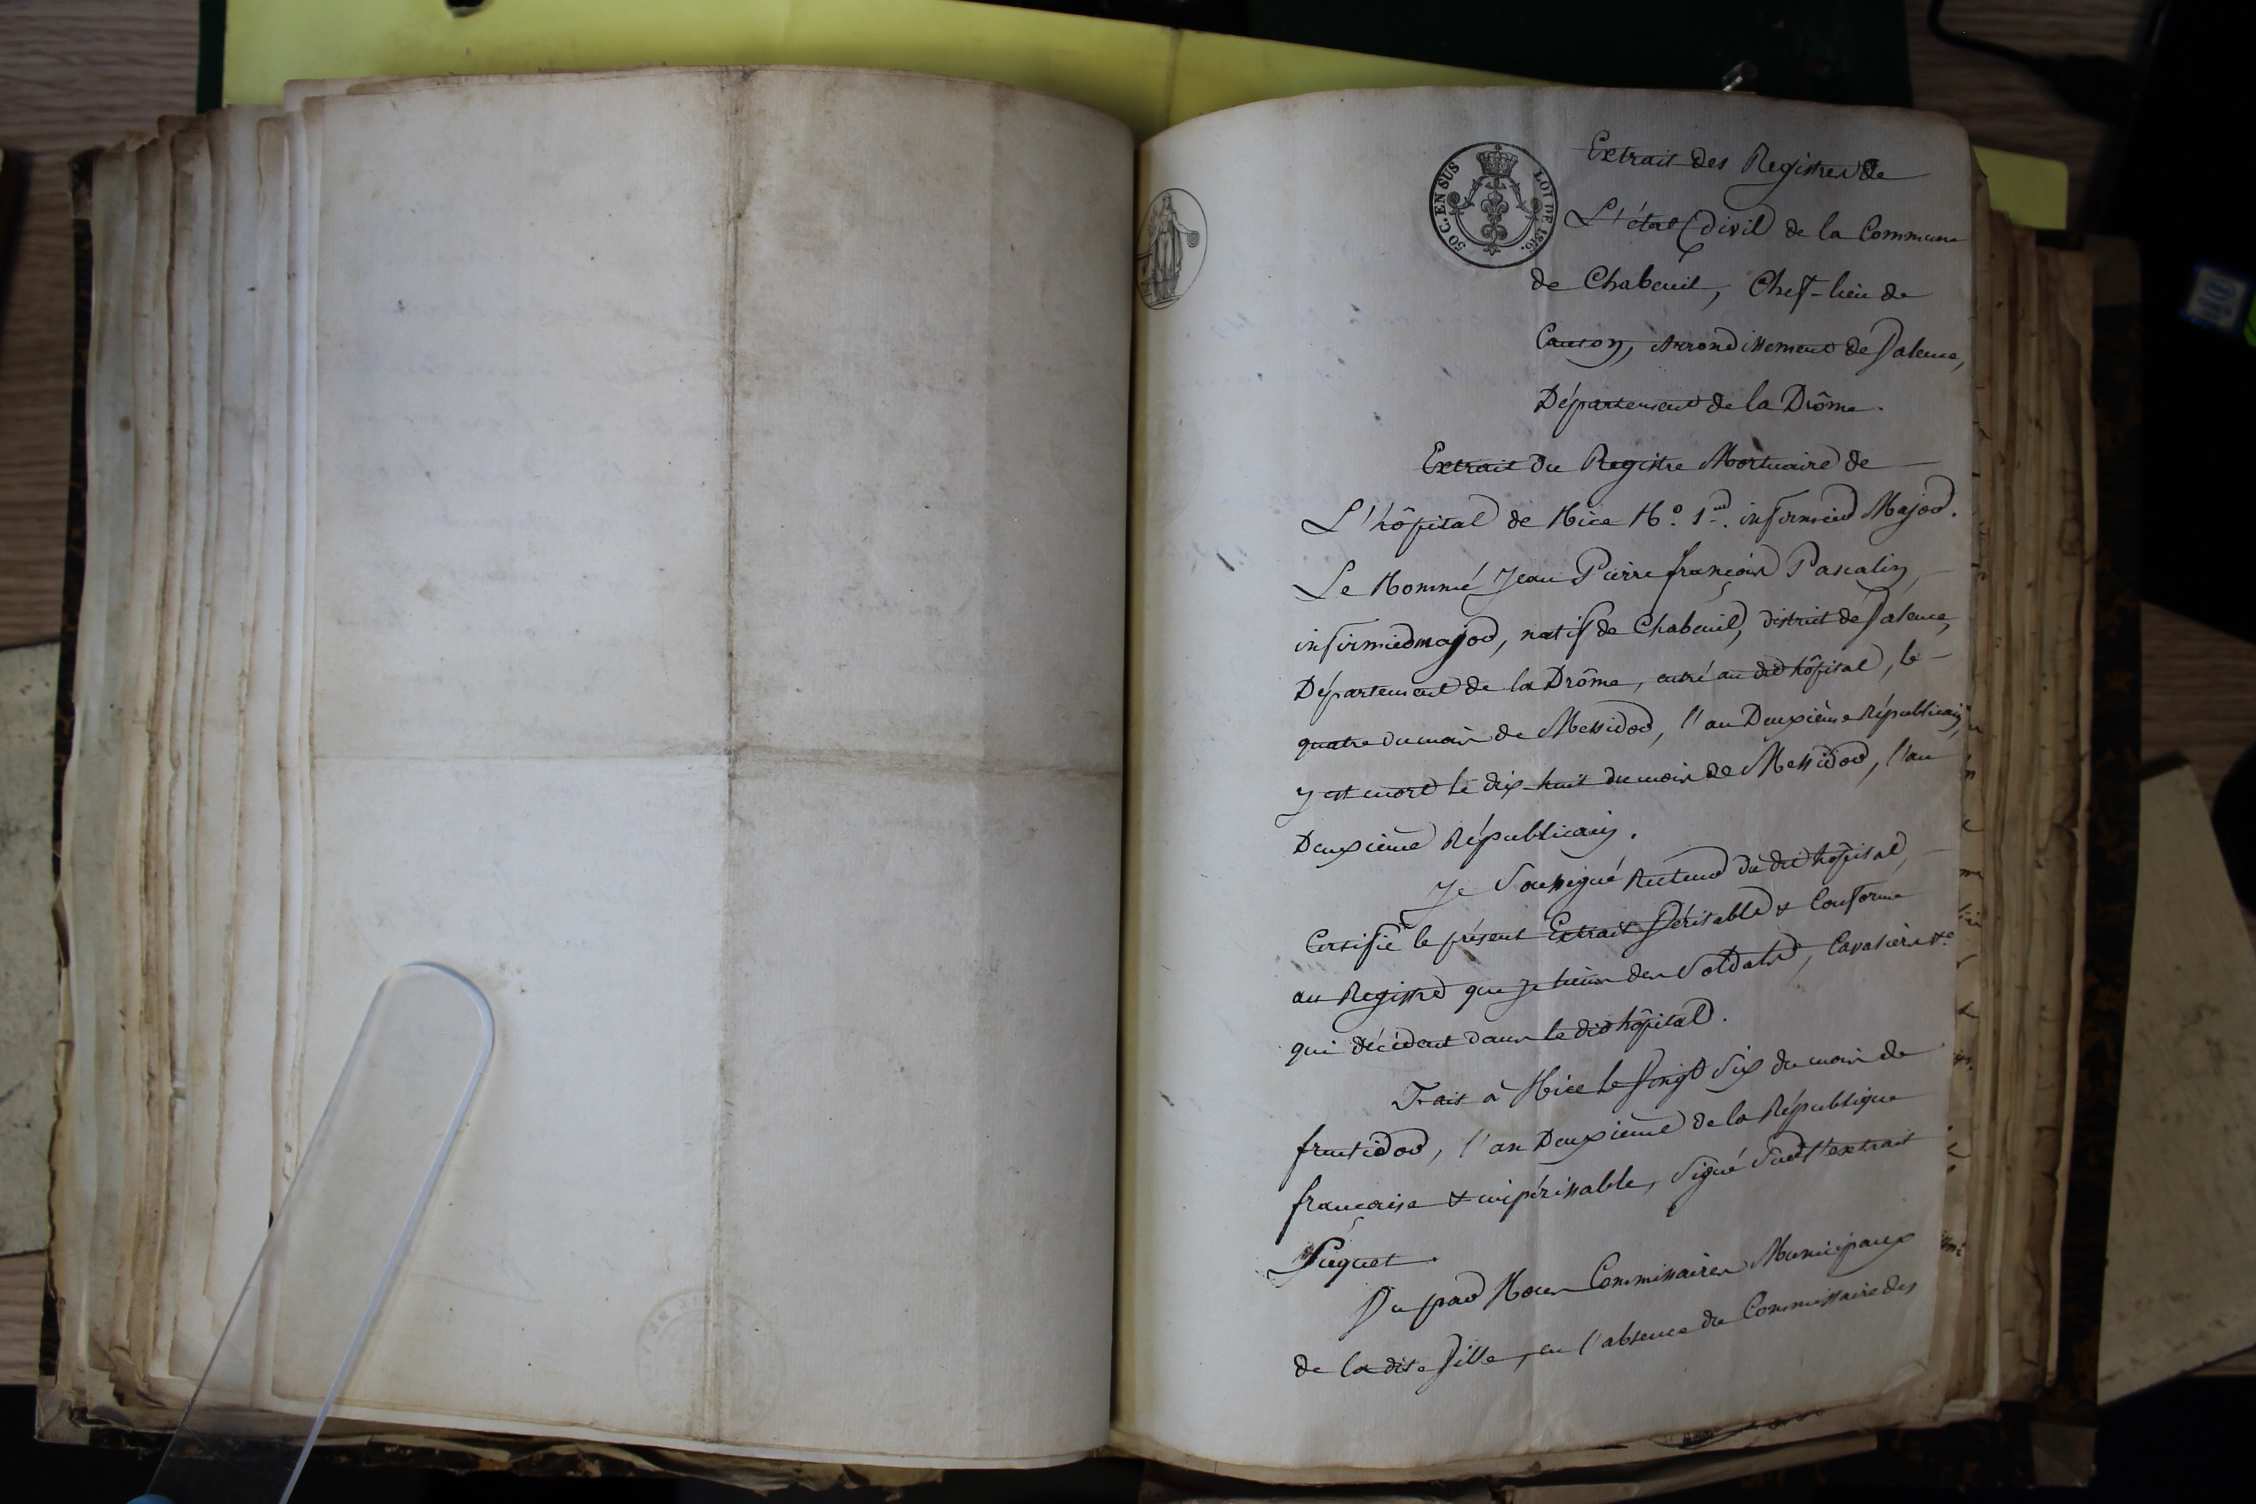 50 C. EN SUS
LOI DE 1816.
Extrait des Registres de
L'état Civil de la Commune
de Chabeuil, Chef-lieu de
Canton, Arrondissement de Valence,
Département de la Drôme.
Extrait du Registre Mortuaire de
L'hôpital de Nice N.º 1.er infirmier Major.
Le Nommé Jean Pierre françois Pascalin,
infirmier major, natif de Chabeuil, district de Valence,
Département de la Drôme, entré au dit hôpital, le
quatre du mois de Messidor, l'an Deuxième Républicain,
y est mort le dix-huit du mois de Messidor, l'an
Deuxième Républicain.
Je Soussigné Recteur du dit hôpital,
Certifie le présent Extrait Véritable & Conforme
au Registre que je tiens des Soldats, Cavaliers &c
qui décèdent dans le dit hôpital.
Fait à Nice le Vingt Six du mois de
fructidor, l'an Deuxieme de la République
française & impérissable, Signé Sur l'extrait
Piequet.
Vu par Nous Commissaires Municipaux
de la dite Ville, en l'absence du Commissaire des